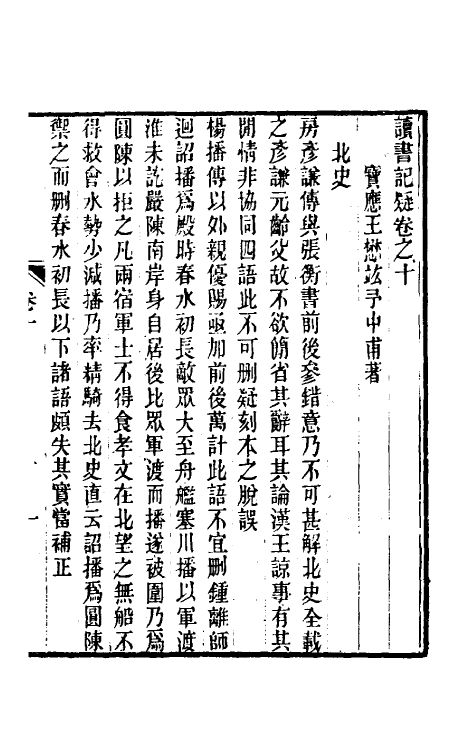 讀書記疑卷之十
寶應王懋竑予中甫著
北史
房彥謙傳與張衡書前後參錯意乃不可甚解北史全載
之彥謙元齡父故不欲簡省其辭耳其論漢王諒事有其
閒情非協同四語此不可刪疑刻本之脫誤
楊播傳以外親優賜亟加前後萬計此語不宜刪鍾離師
迴詔播爲殿時春水初長敵眾大至舟艦塞川播以軍渡
淮未訖嚴陳南岸身自居後比眾軍渡而播遂被圍乃爲
圓陳以拒之凡兩宿軍士不得食孝文在北望之無船不
得救會水勢少減播乃率精騎去北史直云詔播爲圓陳
禦之而刪春水初長以下諸語頗失其實當補正
卷十
一